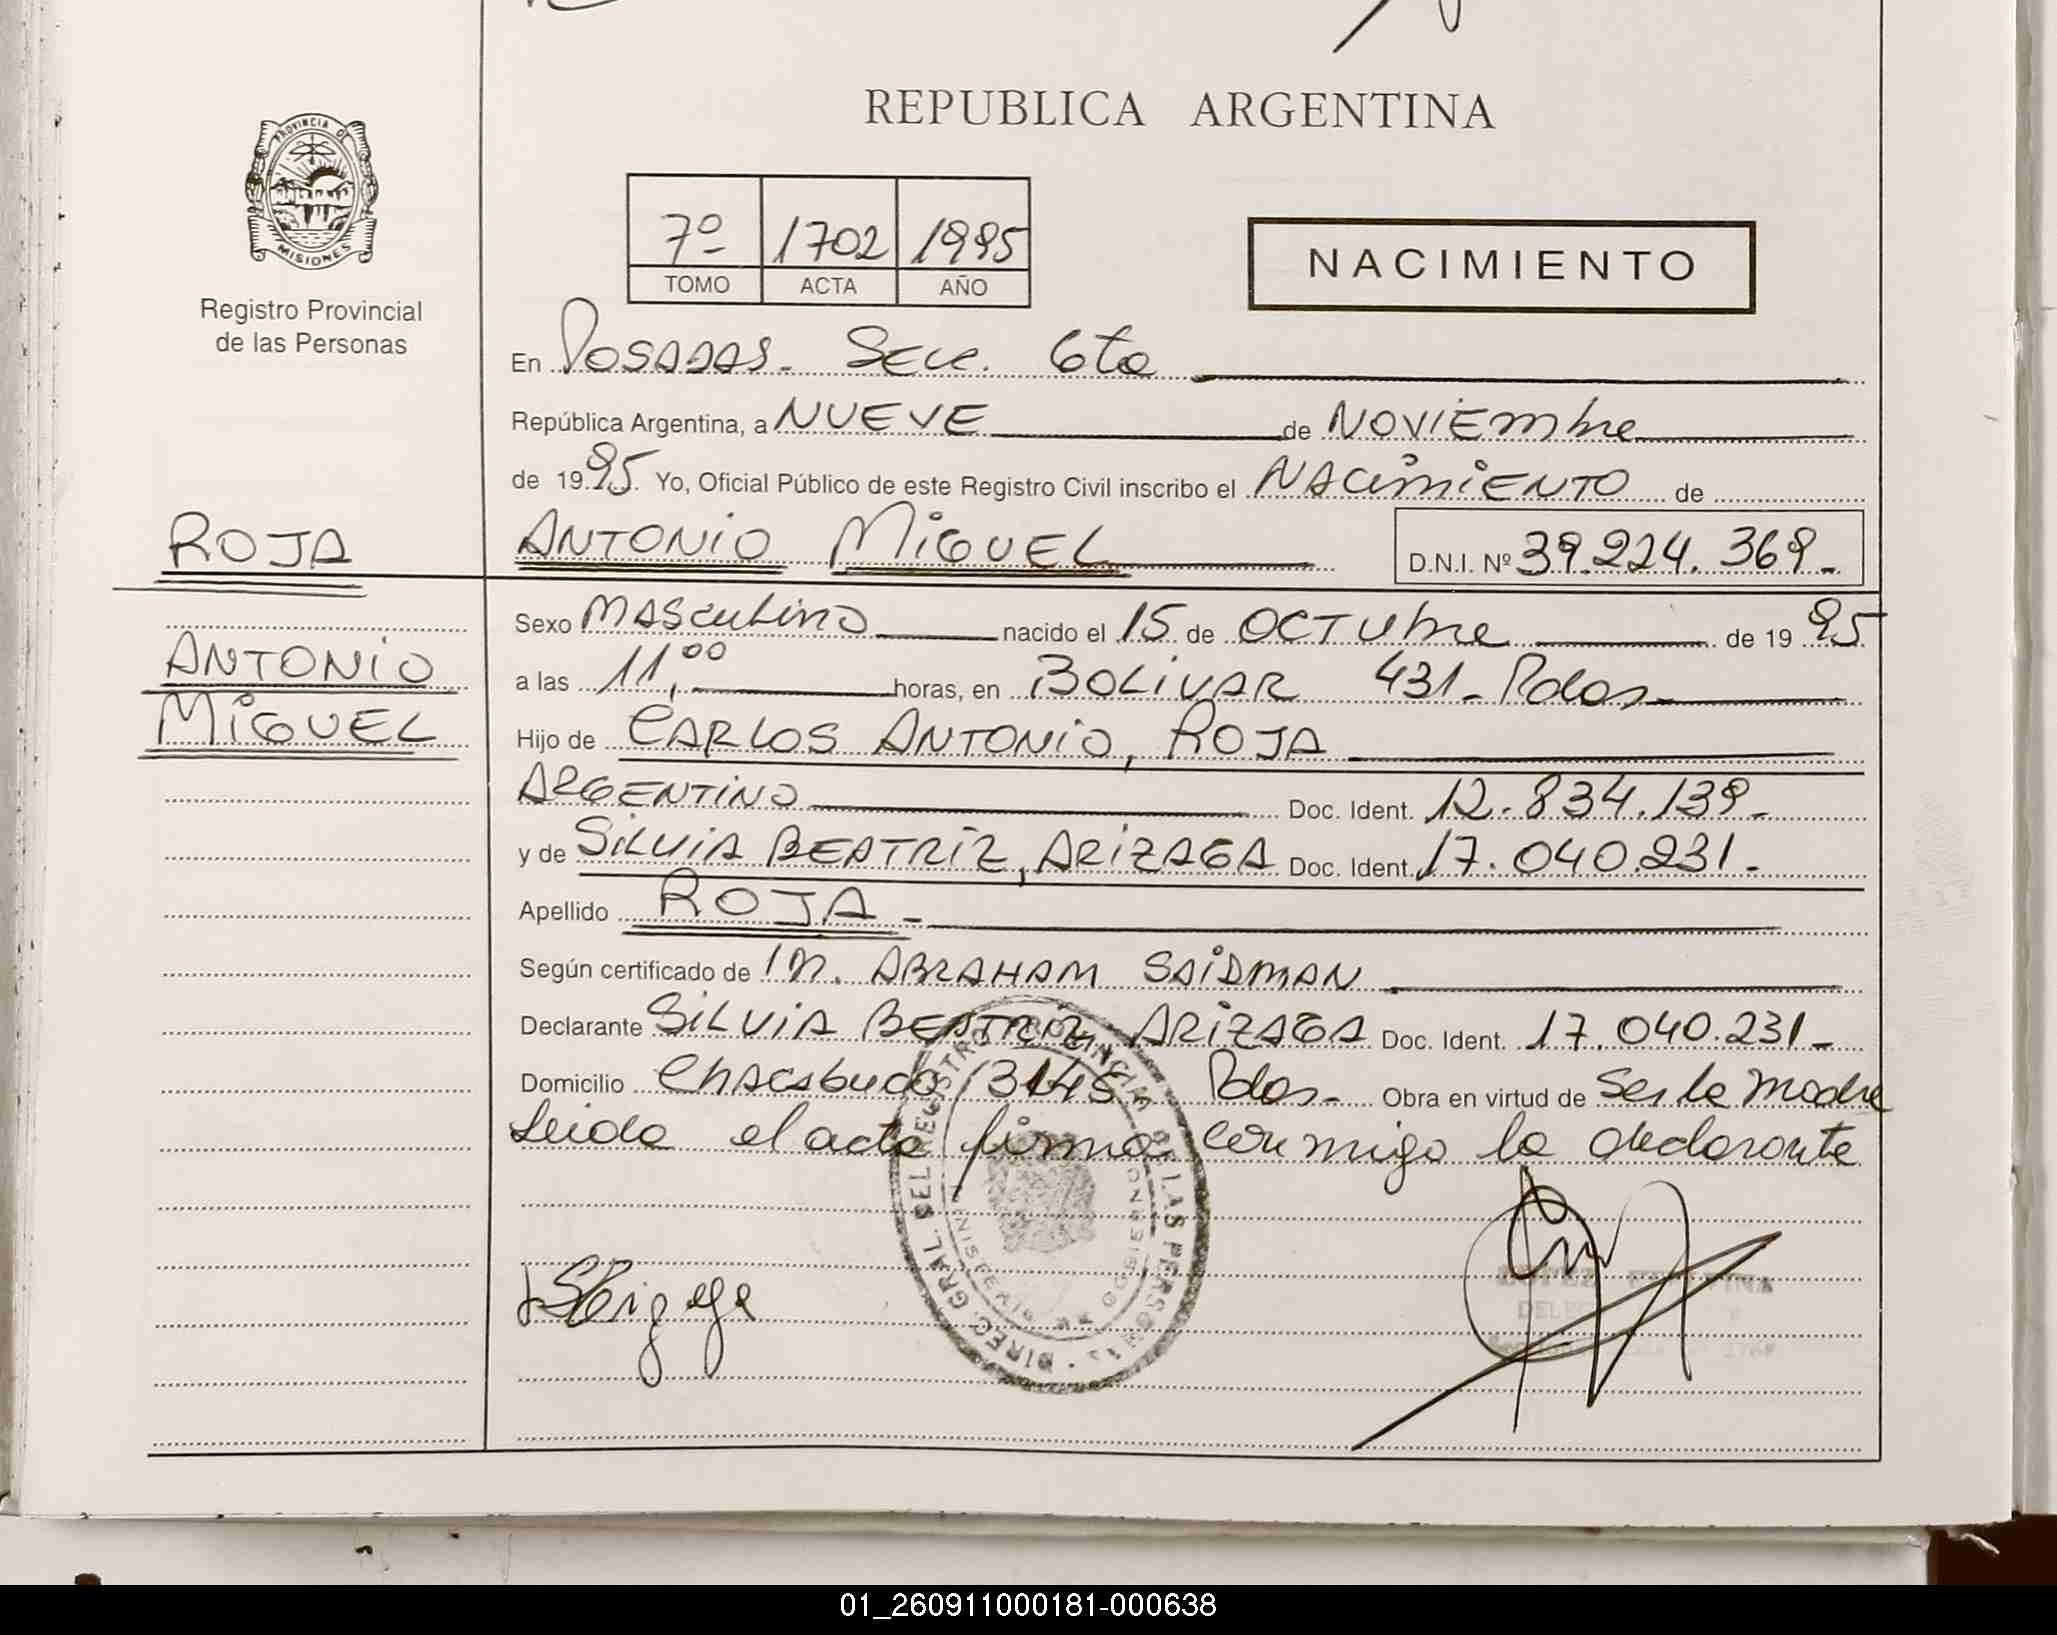 REPUBLICA ARGENTINA
PROVINCIA DE
MISIONES
Registro Provincial
de las Personas
7º 1702 1995
TOMO ACTA AÑO
NACIMIENTO
En Posadas - Secc. 6ta
República Argentina, a NUEVE de NOVIEmbre
de 1995 Yo, Oficial Público de este Registro Civil inscribo el NACimiENTO de
ROJA
ANTONIO MIGUEL D.N.I. Nº 39.224.369.-
ANTONIO
MIGUEL
Sexo MASculino nacido el 15 de OCTUbre de 1995
a las 11,00 horas, en BOLIVAR 431 - Pdas -
Hijo de CARLOS ANTONIO, ROJA
ARGENTINO Doc. Ident. 12.834.139.-
y de SILVIA BEATRIZ, ARIZAGA Doc. Ident. 17.040.231.-
Apellido ROJA -
Según certificado de M. ABRAHAM SAIDMAN
Declarante SILVIA BEATRIZ ARIZAGA Doc. Ident. 17.040.231 -
Domicilio Chacabuco 3145 - Pdas - Obra en virtud de Ser la madre
Leida el acta firma conmigo la declarante
DIREC. GRAL. DEL REGISTRO PROVINCIAL DE LAS PERSONAS
01_260911000181-000638